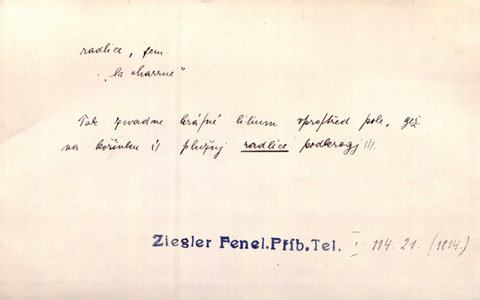 radlice, fem.
„la charrue"
Tak zwadne krásné litium vprostřed pole, gež
na kořínku plužný radlice podkrogj
Ziegler Fenel.Příb.Tel. I. 114. 21. (1814.)